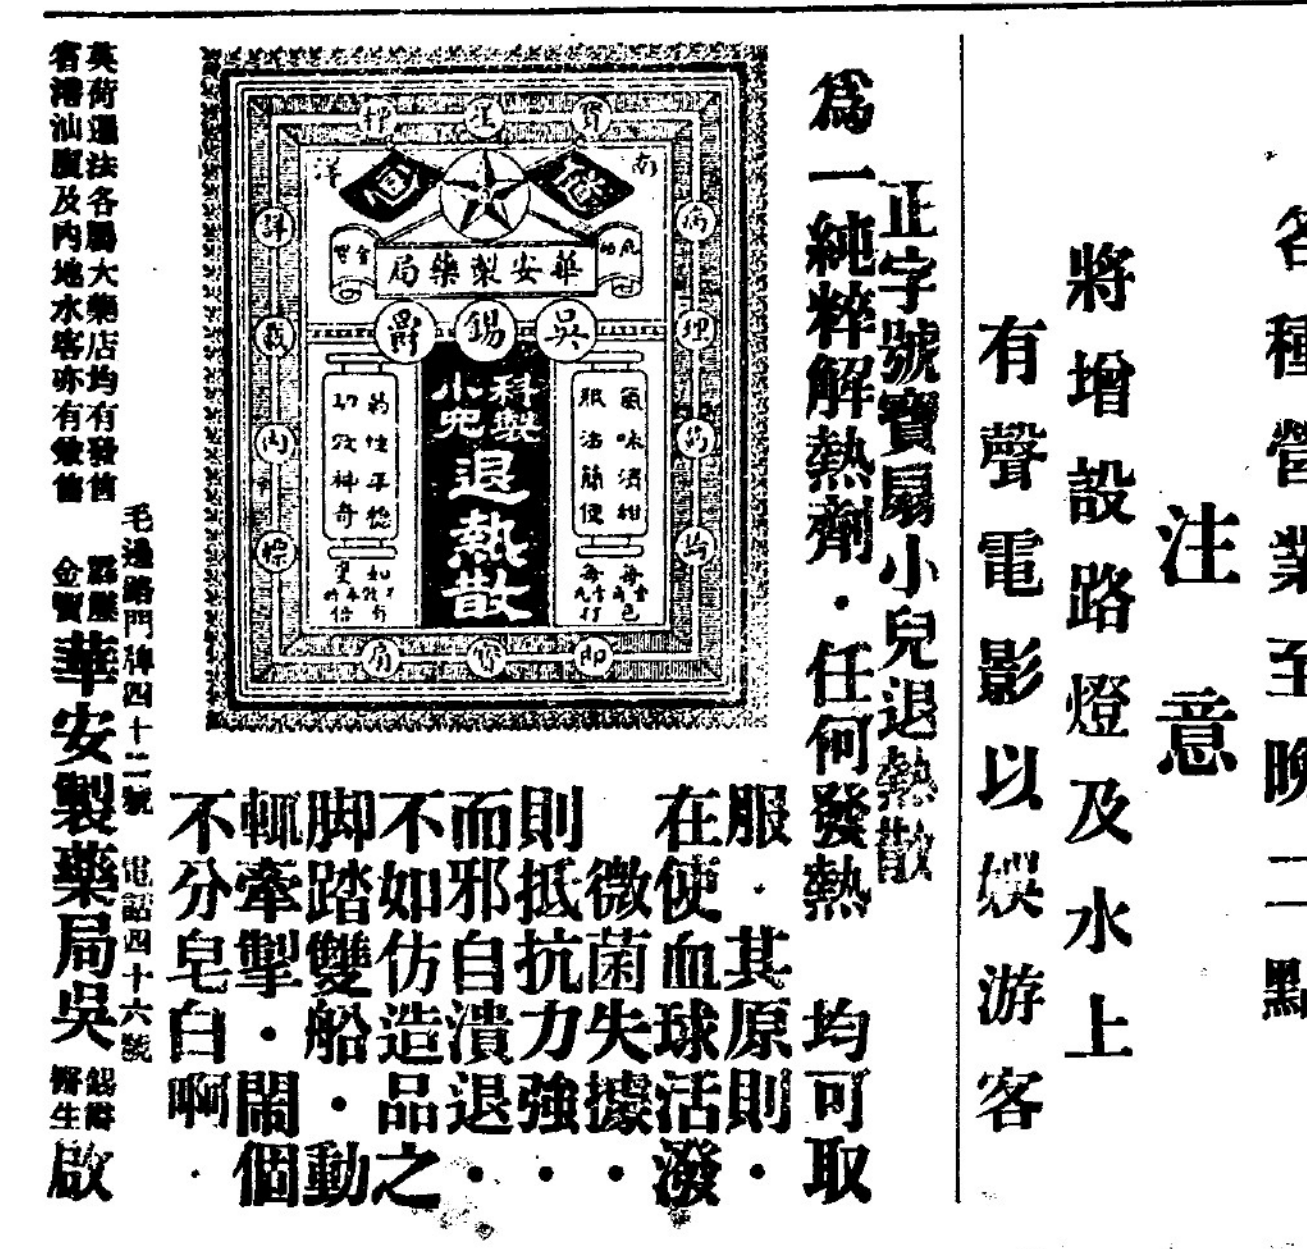 各種營業至晚一點
注意
將增設路燈及水上
有聲電影以娛游客
正字號寶扇小兒退熱散
為一純粹解熱劑·任何發熱 均可取
服·其原則·
在使血球活潑
微菌失據·
則抵抗力強·
而邪自潰退·
不如仿造品之
脚踏雙船·動
輒牽掣·鬧個
不分皂白啊·
寶
南
洋
華安製藥局
吳錫爵
氣味清甜
服法簡便
每
小兒科製
退熱散
藥性平穩
功效神奇
如
病理
即寶扇
英荷暹法各屬大藥店均有發售
省港汕廈及內地水客亦有兼售
毛邊路門牌四十二號 電話四十六號
華安製藥局吳
啟